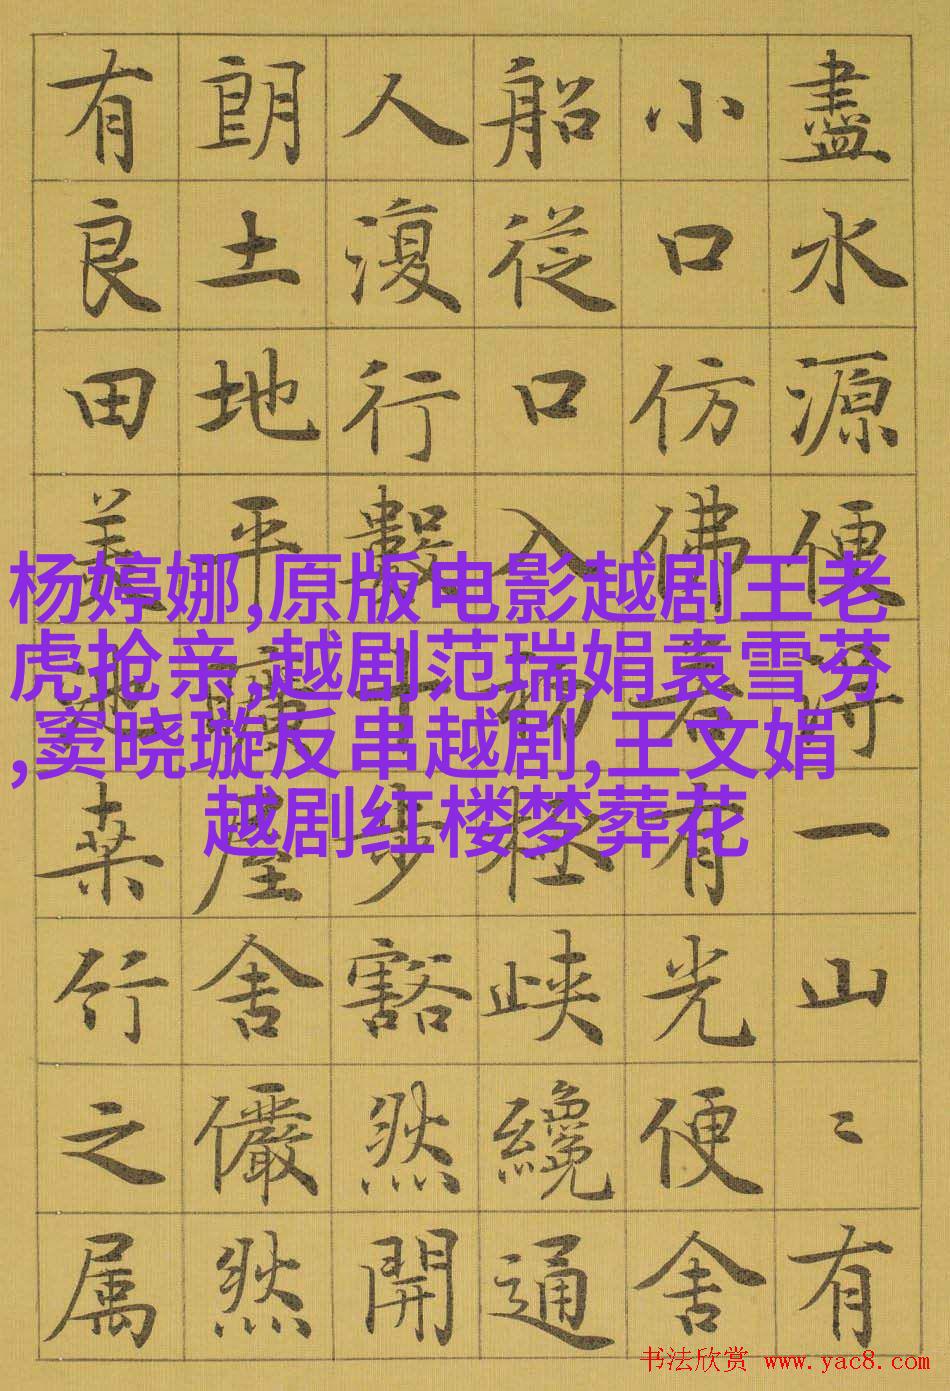 盡水源便得一山〻有
小口仿佛若有光便舍
船從口入初極峽纔通
人復行數十步豁然開
朗土地平曠屋舍儼然
有良田美池桑竹之属
杨婷娜,原版电影越剧王老
虎抢亲,越剧范瑞娟袁雪芬
,窦晓璇反串越剧,王文娟
越剧红楼梦葬花
书法欣赏 www.yac8.com